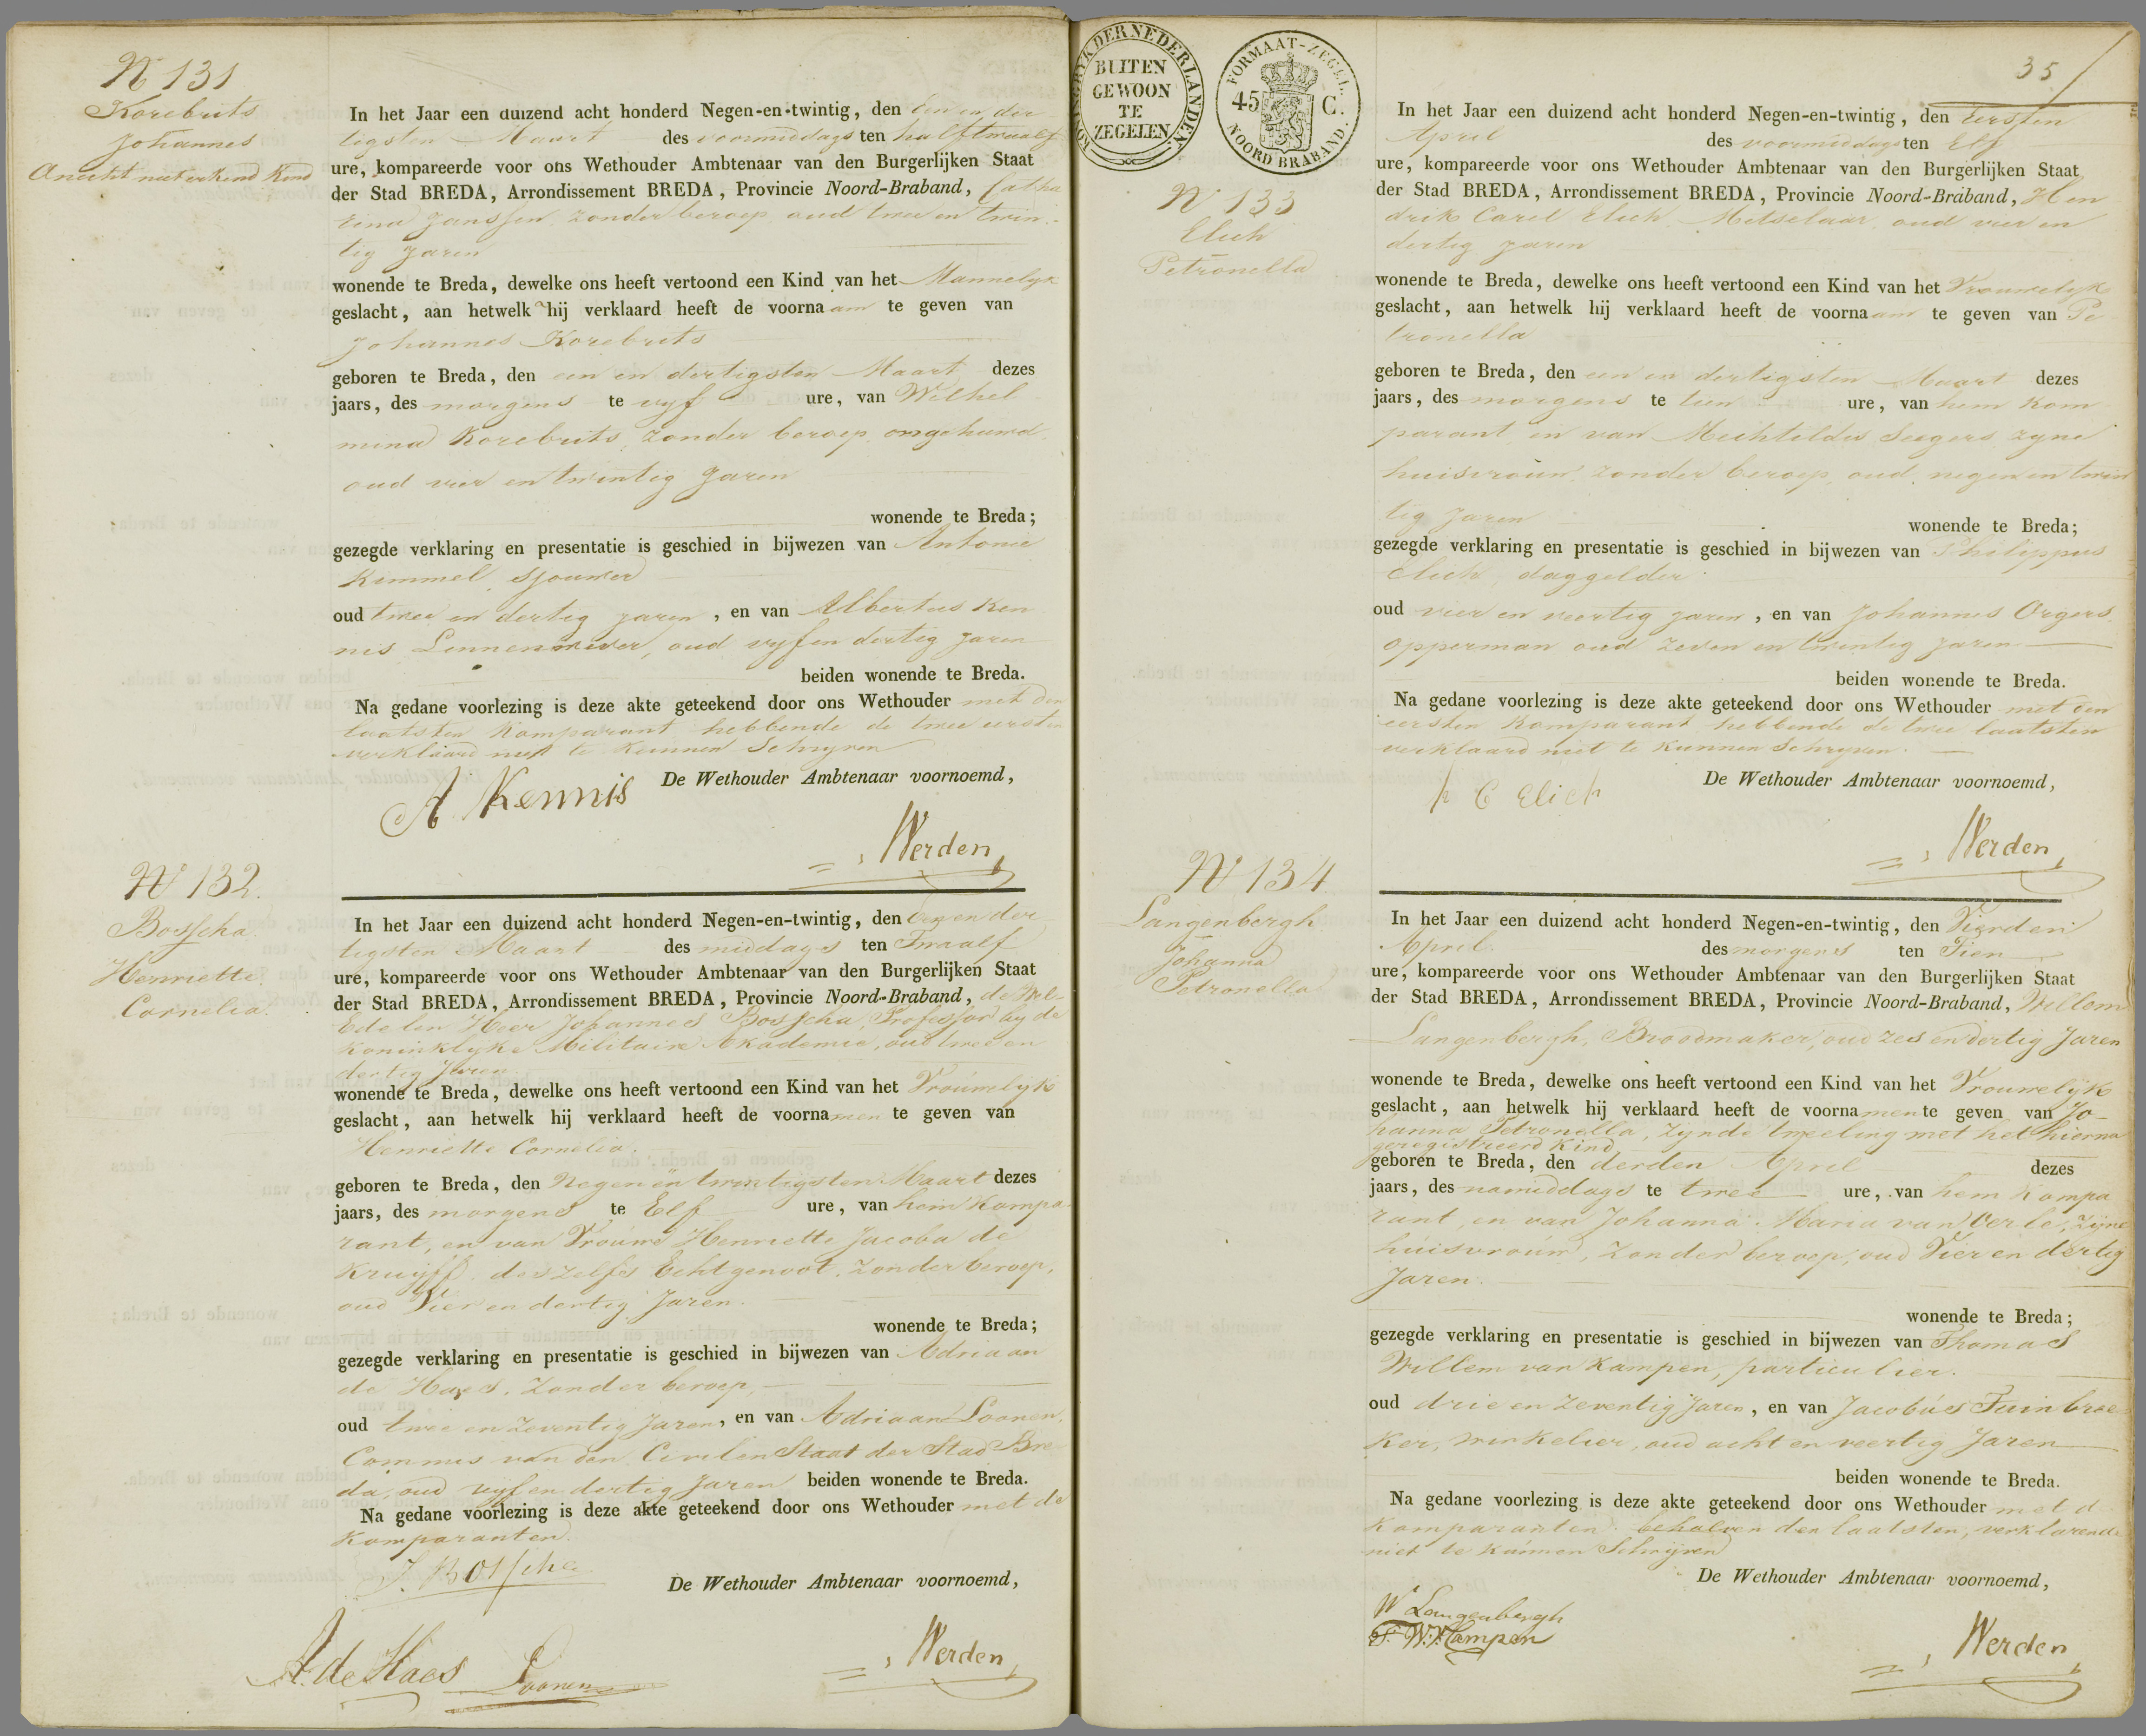 N 131
Korebrits
Johannes
Onecht niet erkend Kind
In het Jaar een duizend acht honderd Negen-en-twintig, den een en der
tigsten Maart des voormiddags ten half twaalf
ure, kompareerde voor ons Wethouder Ambtenaar van den Burgerlijken Staat
der Stad BREDA, Arrondissement BREDA, Provincie Noord-Braband, Catha
rina Janssen, zonder beroep, oud twee en twin-
tig jaren
wonende te Breda, dewelke ons heeft vertoond een Kind van het Mannelyk
geslacht, aan hetwelk hij verklaard heeft de voornaam te geven van
Johannes Korebrits
geboren te Breda, den een en dertigsten Maart dezes
jaars, des morgens te vyf ure, van Wilhel
mina Korebrits, zonder beroep, ongehuwd,
oud vier en twintig Jaren
wonende te Breda;
gezegde verklaring en presentatie is geschied in bijwezen van Antonie
Kimmel, sjouwer
oud twee en dertig jaren, en van Albertus Ken
nis Linnenwever, oud vyf en dertig jaren
beiden wonende te Breda.
Na gedane voorlezing is deze akte geteekend door ons Wethouder met den
laatsten Komparant hebbende de twee eersten
verklaard niet te kunnen Schryven
De Wethouder Ambtenaar voornoemd,
A Kennis
Werden
N 132.
Bosscha
Henriette
Cornelia.
In het Jaar een duizend acht honderd Negen-en-twintig, den Een en der
tigsten Maart des middags ten Twaalf
ure, kompareerde voor ons Wethouder Ambtenaar van den Burgerlijken Staat
der Stad BREDA, Arrondissement BREDA, Provincie Noord-Braband, de Wel-
Edelen Heer Johannes Bosscha, Professor by de
Koninklyke Militaire Akademie, oud twee en
dertig Jaren
wonende te Breda, dewelke ons heeft vertoond een Kind van het Vrouwelijk
geslacht, aan hetwelk hij verklaard heeft de voornamen te geven van
Henriette Cornelia.
geboren te Breda, den Negen en twintigsten Maart dezes
jaars, des morgens te Elf ure, van hem Kompa
rant, en van Vrouwe Henriette Jacoba de
Kruyff, deszelfs Echtgenoot, zonder beroep,
oud Vier en dertig Jaren.
wonende te Breda;
gezegde verklaring en presentatie is geschied in bijwezen van Adriaan
de Haes, zonder beroep,
oud twee en zeventig Jaren, en van Adriaan Loonen,
Commis van den Civilen Staat der Stad Bre
da, oud vyf en dertig Jaren beiden wonende te Breda.
Na gedane voorlezing is deze akte geteekend door ons Wethouder met de
Komparanten.
J. Bosscha
De Wethouder Ambtenaar voornoemd,
A. de Haes Loonen
Werden
KONINGRYK DER NEDERLANDEN.
BUITEN
GEWOON
TE
ZEGELEN
FORMAAT-ZEGEL.
45 C.
NOORD BRABAND.
35
N 133
Elich
Petronella
In het Jaar een duizend acht honderd Negen-en-twintig, den Eersten
April des voormiddags ten Elf
ure, kompareerde voor ons Wethouder Ambtenaar van den Burgerlijken Staat
der Stad BREDA, Arrondissement BREDA, Provincie Noord-Braband, Hen
drik Carel Elich Metselaar, oud vier en
dertig jaren
wonende te Breda, dewelke ons heeft vertoond een Kind van het Vrouwelyk
geslacht, aan hetwelk hij verklaard heeft de voornaam te geven van Pe
tronella
geboren te Breda, den een en dertigsten Maart dezes
jaars, des morgens te tien ure, van hem Kom
parant, en van Mechteldis Seegers zyne
huisvrouw, zonder beroep, oud negen en twin
tig Jaren
wonende te Breda;
gezegde verklaring en presentatie is geschied in bijwezen van Philippus
Elich, daggelder
oud vier en veertig jaren, en van Johannes Orgers
opperman oud zeven en twintig jaren
beiden wonende te Breda.
Na gedane voorlezing is deze akte geteekend door ons Wethouder met den
eersten Komparant hebbende de twee laatsten
verklaard niet te kunnen Schryven.
De Wethouder Ambtenaar voornoemd,
h C Elich
Werden
N 134
Langenbergh
Johanna
Petronella
In het Jaar een duizend acht honderd Negen-en-twintig, den Vierden
April des morgens ten Tien
ure, kompareerde voor ons Wethouder Ambtenaar van den Burgerlijken Staat
der Stad BREDA, Arrondissement BREDA, Provincie Noord-Braband, Willem
Langenbergh, Broodmaker, oud zes en dertig Jaren
wonende te Breda, dewelke ons heeft vertoond een Kind van het Vrouwelijk
geslacht, aan hetwelk hij verklaard heeft de voornamen te geven van Jo-
hanna Petronella, zynde tweeling met het hierna
geregistreerd Kind
geboren te Breda, den derden April dezes
jaars, des namiddags te twee ure, van hem Kompa
rant, en van Johanna Maria van Oerle, zyne
huisvrouw, zonder beroep, oud Vier en dertig
Jaren.
wonende te Breda;
gezegde verklaring en presentatie is geschied in bijwezen van Thomas
Willem van Kampen, particulier.
oud drie en zeventig Jaren, en van Jacobus Tuinbroe
ker, winkelier, oud acht en veertig Jaren
beiden wonende te Breda.
Na gedane voorlezing is deze akte geteekend door ons Wethouder met d
Komparanten. behalven den laatsten, verklarende
niet te kunnen Schrijven
De Wethouder Ambtenaar voornoemd,
W Langenbergh
T. W. V. Kampen
Werden